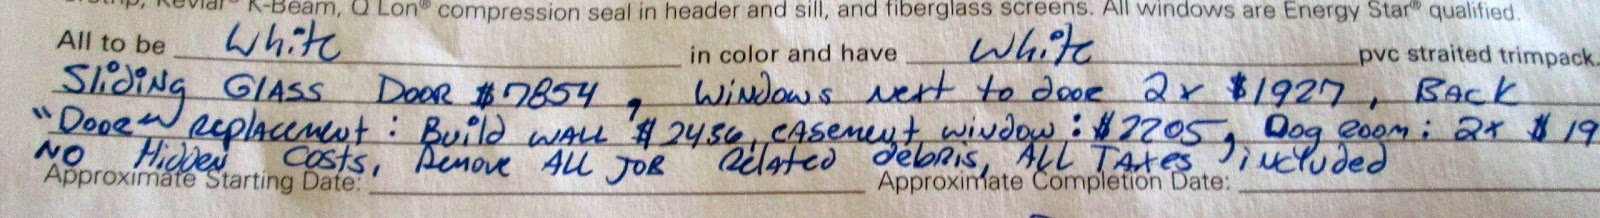 Kevlar® K-Beam, Q Lon® compression seal in header and sill, and fiberglass screens. All windows are Energy Star® qualified.
All to be White in color and have White pvc straited trimpack.
Sliding GLASS DOOR $7854, Windows next to door 2x $1927, BACK
"Door" replacement: Build WALL $2436, CASEMENT window: $2205, Dog room: 2x $19
NO Hidden Costs, Remove ALL JOB Related debris, ALL TAXES included
Approximate Starting Date: Approximate Completion Date: